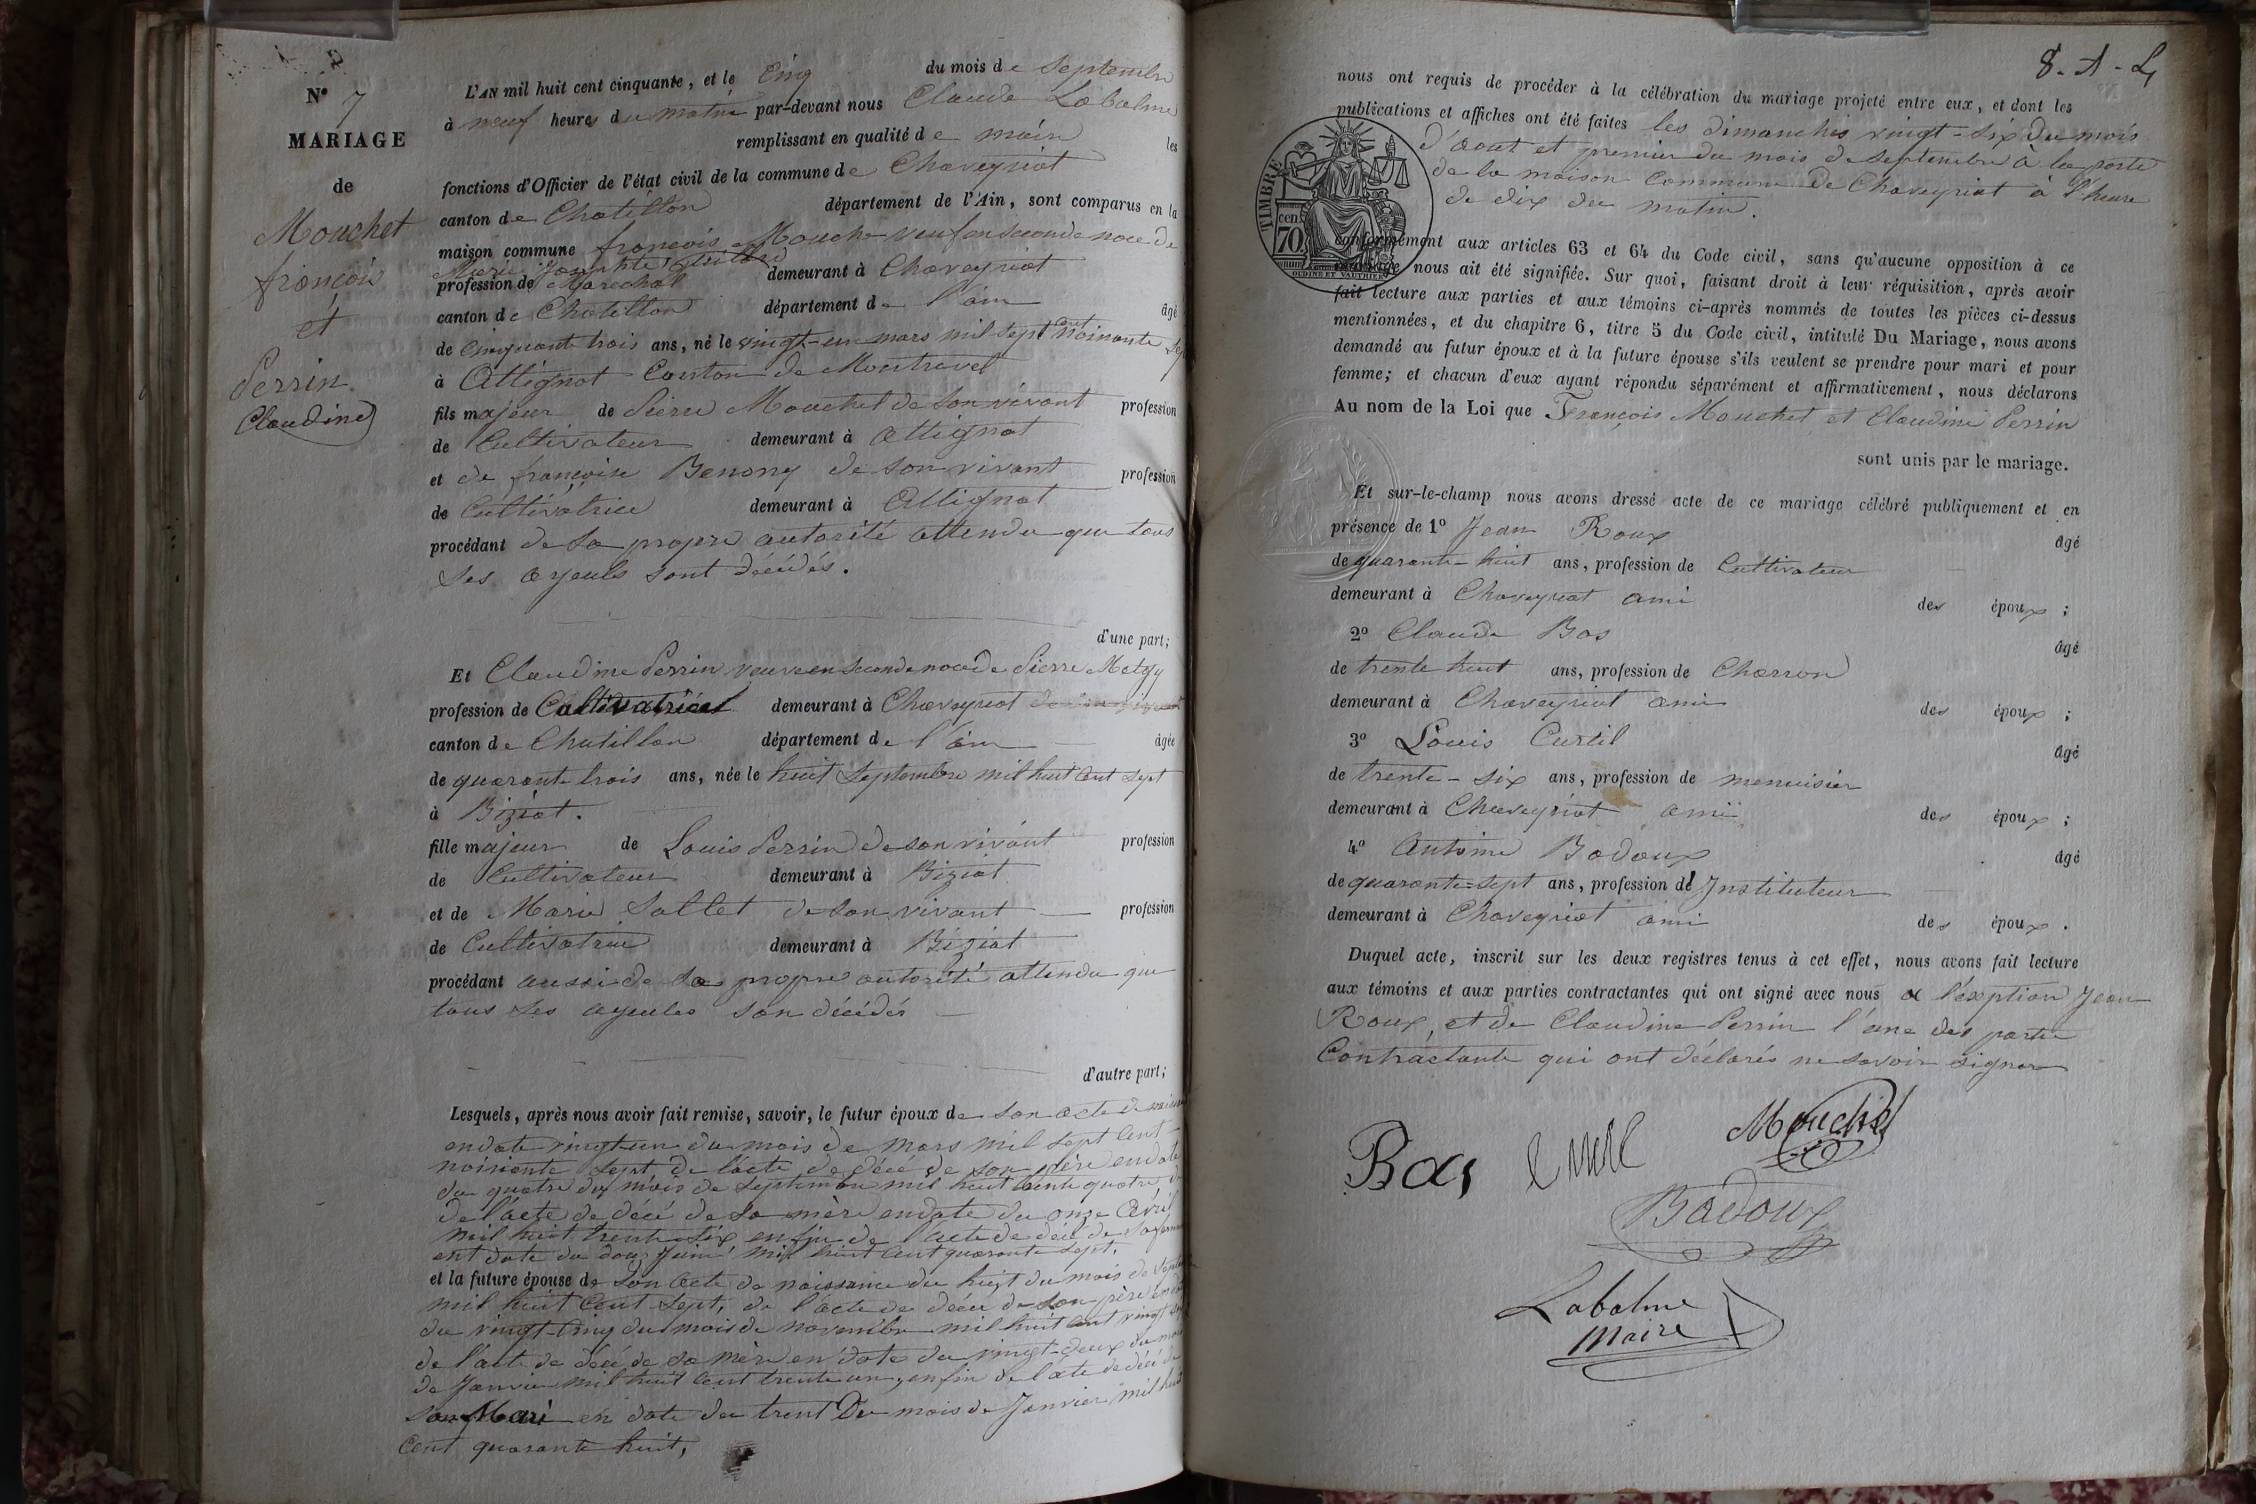 N° 7
MARIAGE
de
Mouchet
françois
et
Perrin
Claudine
L'AN mil huit cent cinquante, et le Cinq du mois de Septembre
à neuf heures du matin par-devant nous Claude Labalme
remplissant en qualité de maire les
fonctions d'Officier de l'état civil de la commune de Chaveyriat
canton de Chatillon département de l'Ain, sont comparus en la
maison commune françois Mouche veuf en seconde noce de
Marie Josephte
profession de Marechal demeurant à Chaveyriat
canton de Chatillon département de l'ain âgé
de Cinquante trois ans, né le vingt-un mars mil sept cent noinante sept
à Attignat Canton de Montrevel
fils majeur de Pierre Mouchet de son vivant profession
de Cultivateur demeurant à Attignat
et de francoise Benony de son vivant profession
de Cultivatrice demeurant à Attignat
procédant de sa propre autorité attendu que tous
ses ayeuls sont décédés.
d'une part;
Et Claudine Perrin veuve en seconde noce de Pierre
profession de Cultivatrice demeurant à Chaveyriat
canton de Chatillon département de l'ain âgée
de quarante trois ans, née le huit Septembre mil huit cent sept
à Biziat.
fille majeur de Louis Perrin de son vivant profession
de Cultivateur demeurant à Biziat
et de Marie Sallet de son vivant profession
de Cultivatrice demeurant à Biziat
procédant aussi de sa propre autorité attendu que
tous ses ayeules son décédés
d'autre part;
Lesquels, après nous avoir fait remise, savoir, le futur époux de son acte de
en date vingt un du mois de mars mil sept cent
noinante sept, de l'acte de décé de son père en date
du quatre du mois de septembre mil huit trente quatre
de l'acte de décé de sa mère en date du onze avril
mil huit trente-six enfin de l'acte de décé de sa femme
ent date du douz juin mil huit cent quarante sept.
et la future épouse de son acte de naissance du huit du mois de
mil huit cent sept, de l'acte de décé de son père en
du vingt-cinq du mois de novembre mil huit cent vingt
de l'acte de décé de sa mère en date du vingt-deux du mois
de Janvier mil huit cent trente un, enfin de l'acte de décé de
son Mari en date du trent Du mois de Janvier mil huit
cent quarante huit,
8-A-L
nous ont requis de procéder à la célébration du mariage projeté entre eux, et dont les
publications et affiches ont été faites les dimanches vingt-six du mois
d'aout et premier du mois de septembre à la porte
de la maison commune de Chaveyriat à l'heure
de dix du matin.
TIMBRE
cen.
70
OUDINE ET VAUTHIER
conformément aux articles 63 et 64 du Code civil, sans qu'aucune opposition à ce
mariage nous ait été signifiée. Sur quoi, faisant droit à leur réquisition, après avoir
fait lecture aux parties et aux témoins ci-après nommés de toutes les pièces ci-dessus
mentionnées, et du chapitre 6, titre 5 du Code civil, intitulé Du Mariage, nous avons
demandé au futur époux et à la future épouse s'ils veulent se prendre pour mari et pour
femme; et chacun d'eux ayant répondu séparément et affirmativement, nous déclarons
Au nom de la Loi que François Mouchet et Claudine Perrin
sont unis par le mariage.
Et sur-le-champ nous avons dressé acte de ce mariage célébré publiquement et en
présence de 1° Jean Roux âgé
de quarante-huit ans, profession de Cultivateur
demeurant à Chaveyriat ami des époux;
2° Claude Bas âgé
de trente huit ans, profession de Charron
demeurant à Chaveyriat ami des époux;
3° Louis Curtil âgé
de trente-six ans, profession de menuisier
demeurant à Chaveyriat ami des époux;
4° Antoine Badoux âgé
de quarante-sept ans, profession de Instituteur
demeurant à Chaveyriat ami des époux.
Duquel acte, inscrit sur les deux registres tenus à cet effet, nous avons fait lecture
aux témoins et aux parties contractantes qui ont signé avec nous a l'exption Jean
Roux, et de Claudine Perrin l'une des partie
Contractante qui ont déclarés ne savoir signer
Bas Mouchet
Badoux
Labalme
Maire